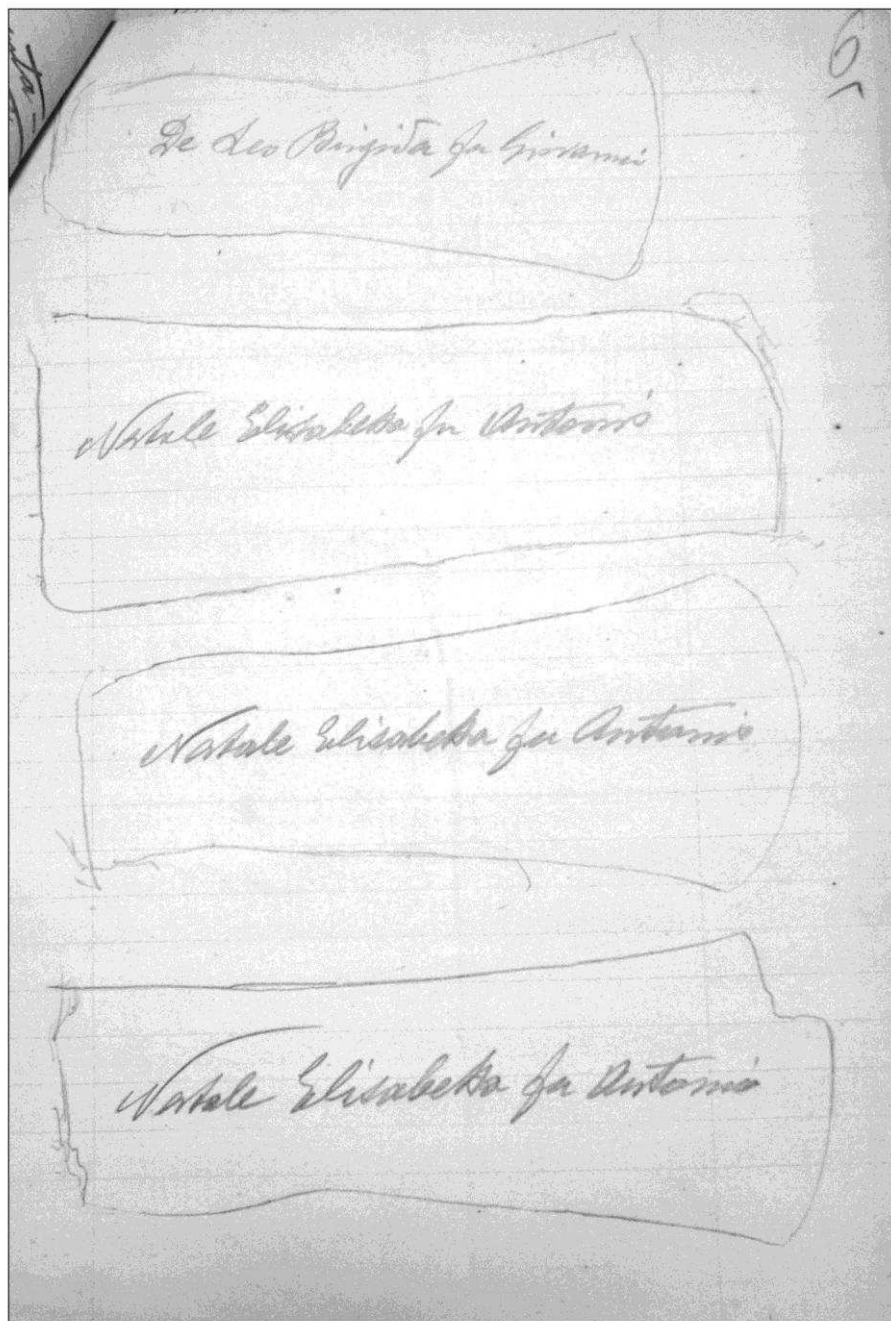 6
De Leo Brigida fu Giovanni
Natale Elisabetta fu Antonio
Natale Elisabetta fu Antonio
Natale Elisabetta fu Antonio